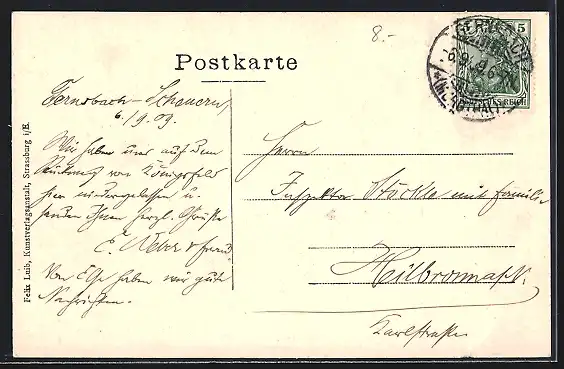 8.-
5
GERNSBACH
(MURGTHAL)
DEUTSCHES REICH
Postkarte
Gernsbach-Scheuern,
6./9.09.
Wir haben uns auf dem
Rückweg von Königsfeld
hier niedergelassen u.
senden Ihnen herzl. Grüße
E. Weber u. Frau.
Von Else haben wir gute
Nachrichten.
Herrn
Inspektor Stöckle mit Familie
Heilbronn a/N.
Karlstraße
Felix Luib, Kunstverlagsanstalt, Strassburg i/E.